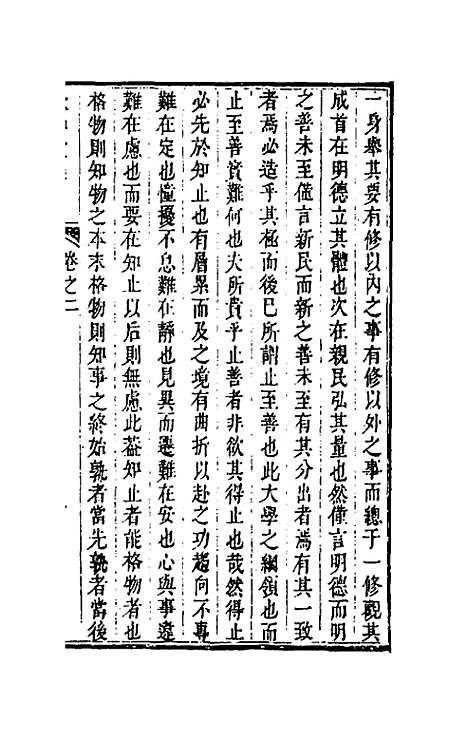 一身舉其要有修以內之事有修以外之事而總于一修觀其
成首在明德立其體也次在親民弘其量也然僅言明德而明
之善未至僅言新民而新之善未至有其分出者焉有其一致
者焉必造乎其極而後已所謂止至善也此大學之綱領也而
止至善實難何也夫所貴乎止善者非欲其得止也哉然得止
必先於知止也有層累而及之境有曲折以赴之功趨向不專
難在定也憧擾不息難在靜也見異而遷難在安也心與事違
難在慮也而要在知止以后則無慮此葢知止者能格物者也
格物則知物之本末格物則知事之終始孰者當先孰者當後
卷之二